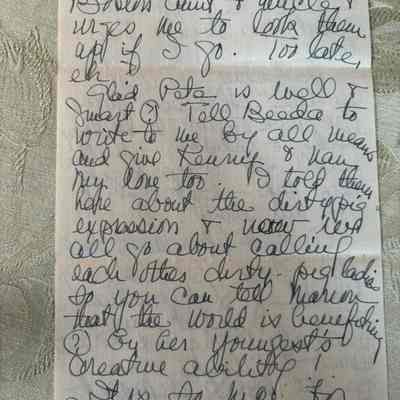 Boston Aunt, &
urges me to look them
up if I go. Too late,
eh?
Glad Pete is well &
Smart (?) Tell Beada to
write to me by all means
and give Kenny & Nan
my love too. I told them
here about the dirty pig
expression & now
all go about calling
each other dirty-pig ladies
so you can tell Marion
that the world is benefiting
(?) by her youngest's
creative ability!